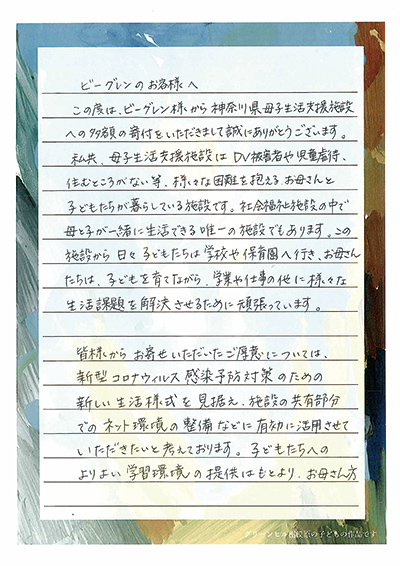 ビーグレンのお客様へ
この度は、ビーグレン様から神奈川県母子生活支援施設
への多額の寄付をいただきまして誠にありがとうございます。
私共、母子生活支援施設はDV被害者や児童虐待、
住むところがない等、様々な困難を抱えるお母さんと
子どもたちが暮らしている施設です。社会福祉施設の中で
母と子が一緒に生活できる唯一の施設でもあります。この
施設から日々子どもたちは学校や保育園へ行き、お母さん
たちは、子どもを育てながら、学業や仕事の他に様々な
生活課題を解決させるために頑張っています。
皆様からお寄せいただいたご厚意については、
新型コロナウィルス感染予防対策のための
新しい生活様式を見据え、施設の共有部分
でのネット環境の整備などに有効に活用させて
いただきたいと考えております。子どもたちへの
よりよい学習環境の提供はもとより、お母さん方
グリーンヒル相模原の子どもの作品です